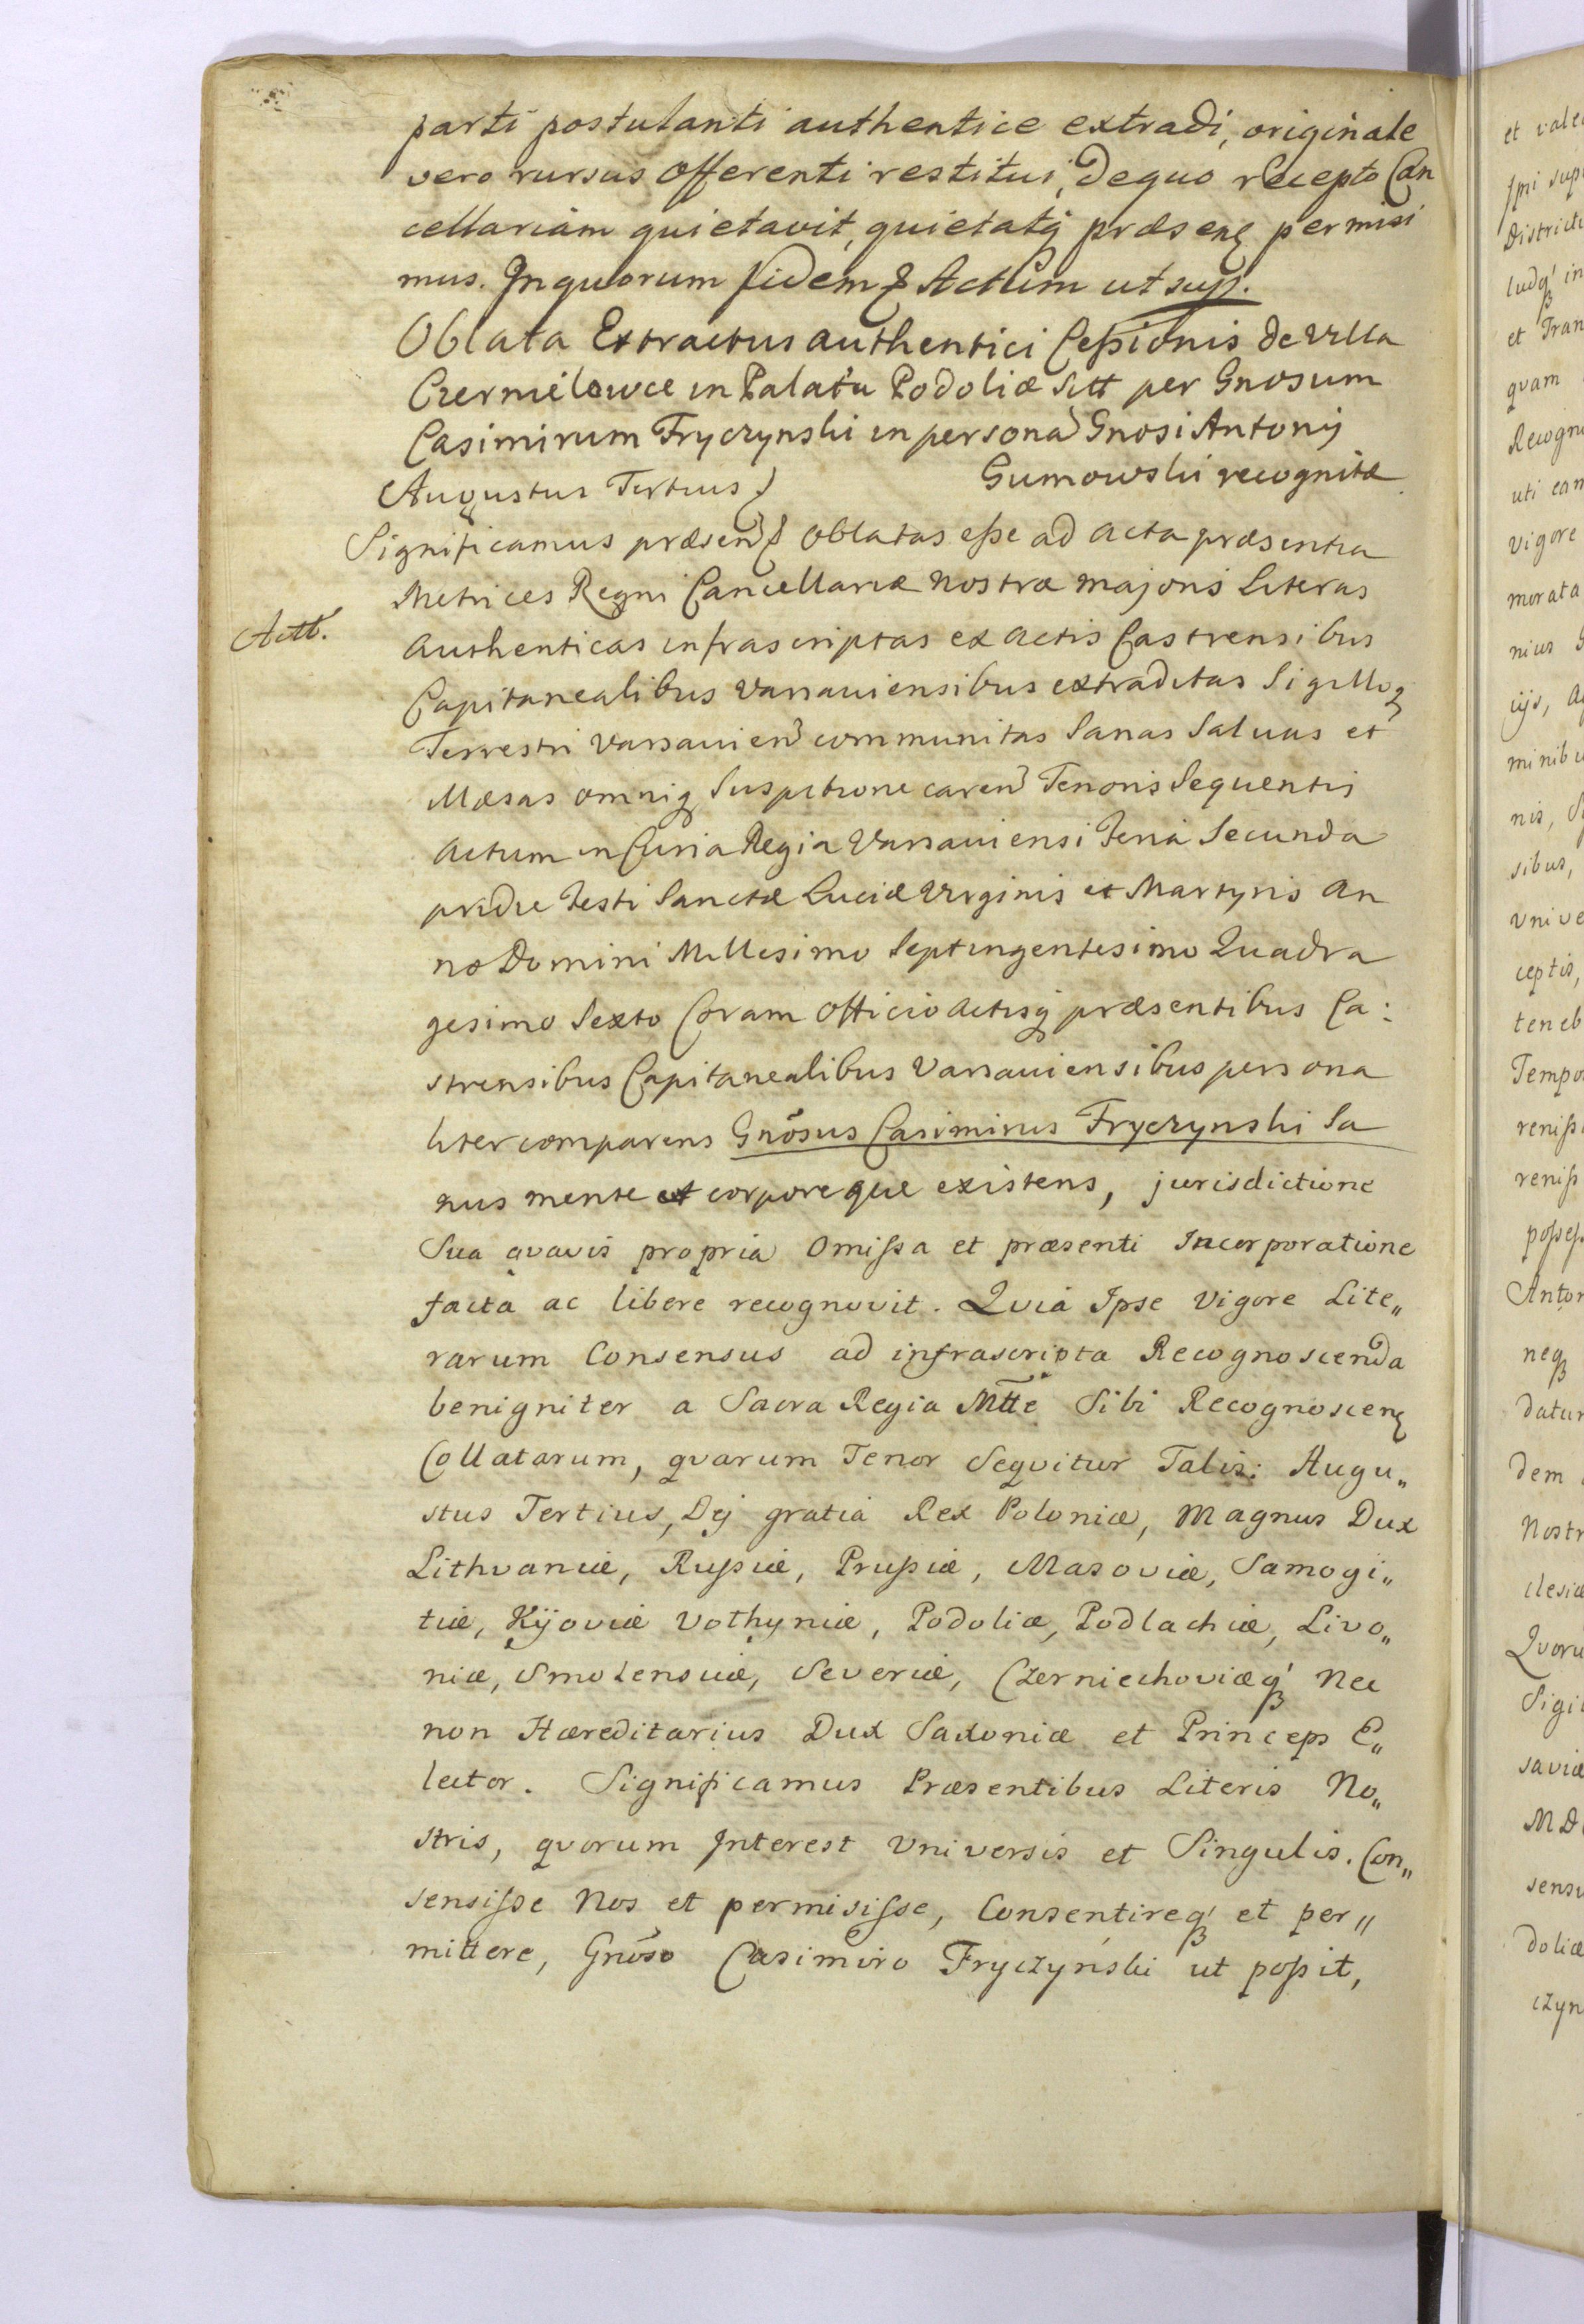 parti postulanti authentice extradi, originale
vero rursus offerenti restitui, de quo recepto Can
cellariam quietavit, quietatq́ præsenę permisi
mus. In quorum fidem & Actum ut sup.
Oblata Extractus authentici Ceßionis de Villa
Czerniełowce in Palatu Podoliæ Sitt per Gnosum
Casimirum Fryczynski in persona Gnosi Antonij
Gumowski recognitæ
Augustus Tertius
Significamus præsen & Oblatas eße ad Acta præsentia
Metrices Regni Cancellariæ Nostræ Majoris Literas
Actt.
Authenticas infrascriptas ex Actis Castrensibus
Capitanealibus Varsaviensibus extraditas Sigilloq
Terrestri Varsavien communitas Sanas Salvas et
Illæsas omniq Suspitione caren Tenoris Sequentis
Actum in Curia Regia Varsaviensi Feria Secunda
pridie Festi Sanctæ Luciæ Virginis et Martyris An
no Domini Millesimo Septingentesimo Quadra
gesimo Sexto Coram Officio Actisq́ præsentibus Ca:
strensibus Capitanealibus Varsaviensibus persona
liter comparens Gnõsus Casimirus Fryczynski Sa
nus mente et corpore que existens, jurisdictione
Sua qvavis propria Omißa et præsenti Incorporatione
facta ac libere recognovit. Qvia Ipse Vigore Lite„
rarum Consensus ad infrascripta Recognoscenda
benigniter a Sacra Regia Mtte Sibi Recognoscenę
Collatarum, qvarum Tenor Seqvitur Talis: Augu„
stus Tertius, Dej gratia Rex Poloniæ, Magnus Dux
Lithvaniæ, Rußiæ, Prußiæ, Masoviæ, Samogi„
tiæ, Kijoviæ Volhyniæ, Podoliæ, Podlachiæ, Livo„
niæ, Smolensciæ, Severiæ, Czerniechoviæq́ Nec
non Hæreditarius Dux Saxoniæ et Princeps E„
lector. Significamus Præsentibus Literis No„
stris, qvorum Interest Vniversis et Singulis. Con„
sensiße Nos et permisiße, Consentireq́ et per„
mittere, Gnõso Casimiro Fryczyński ut poßit,